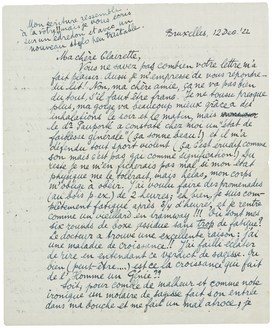 Mon écriture ressemble
à
vous écris
sur un torchon et avec un
nouveau stylo peu traitable.
Bruxelles, 12 Dec. '22
Ma chère Clairette,
Vous ne savez pas combien votre lettre m'a
fait plaisir. Aussi je m'empresse de vous répondre
du lit. Non, ma chère amie, ça ne va pas bien
du tout, s'il faut être franc. Je ne tousse presque
plus, ma gorge va beaucoup mieux grâce à des
inhalations le soir et le matin, mais
le dr. a constaté chez moi un "état de
faiblesse générale" (ça sonne beau!) et il m'a
défendu tout sport violent (ça c'est crevant comme
son mais c'est pas gai comme signification!). Du
reste je me m'en ficherais pas mal si mon état
physique me le tolérait, mais hélas, mon corps
m'oblige à obéir. J'ai voulu faire des promenades
(au bois p. ex) de 2 heures; eh bien, je suis com-
plètement fatigué après ¾ d'heure, et je rentre
comme un vieillard en tramway!!! Où sont mes
six rounds de boxe assidue sans trop de fatigue?
Le docteur a trouvé une excellente raison: j'ai
une maladie de croissance!! J'ai failli éclater
de rire en entendant ce verdict de sagesse. Ou
bien (peut-être....) est ce la croissance qui fait
de l'Homme un Génie??
Soit, pour comble de malheur et comme note
ironique un molaire de sagesse fait son entrée
dans ma bouche et me fait un mal atroce; je